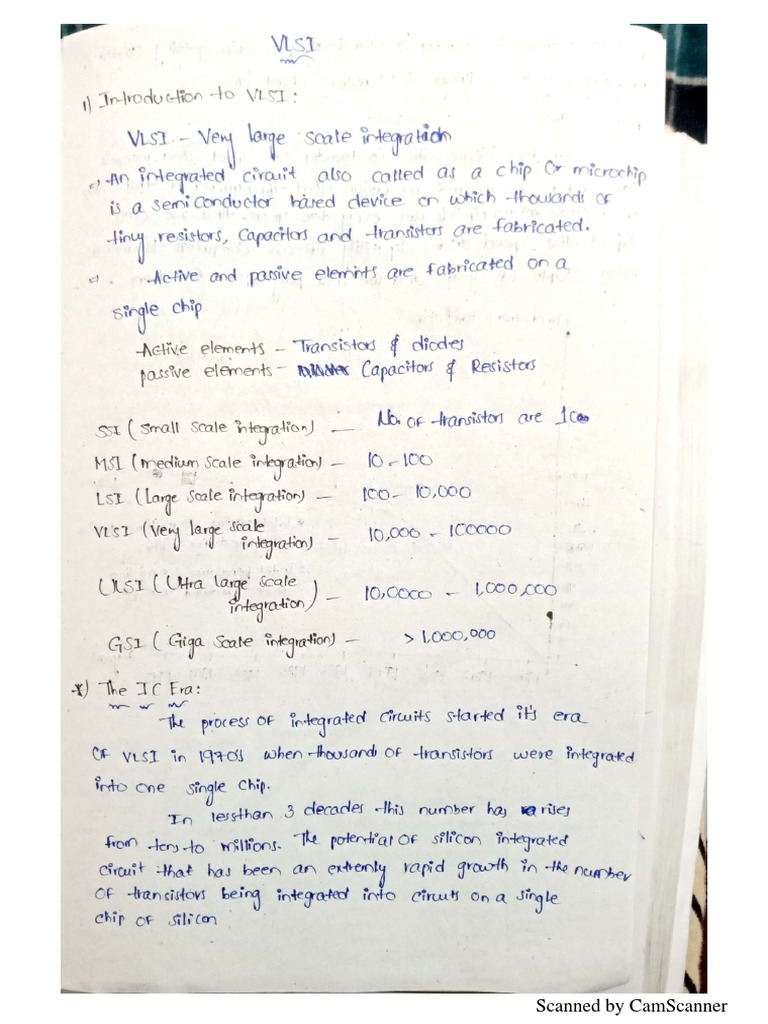 VLSI
1) Introduction to VLSI:
VLSI - Very large scale integration
An integrated circuit also called as a chip or microchip
is a semiconductor based device on which thousands of
tiny resistors, capacitors and transistors are fabricated.
Active and passive elemints are fabricated on a
single chip
Active elements - Transistors & diodes
passive elements - Capacitors & Resistors
SSI (small scale integration) — No. of transistors are
MSI (medium scale integration) - 10-100
LSI (Large scale integration) - 100- 10,000
VLSI (Very large scale
integration) - 10,000 - 100000
ULSI (Ultra large scale
integration) - 10,0000 - 1,000,000
GSI ( Giga Scale integration) - > 1,000,000
*) The IC Era:
The process of integrated circuits started it's era
of VLSI in 1970's when thousands of transistors were integrated
into one single chip.
In lessthan 3 decades this number has rises
from tens to millions. The potential of silicon integrated
circuit that has been an extremly rapid growth in the number
of transistors being integrated into circuits on a single
chip of silicon
Scanned by CamScanner